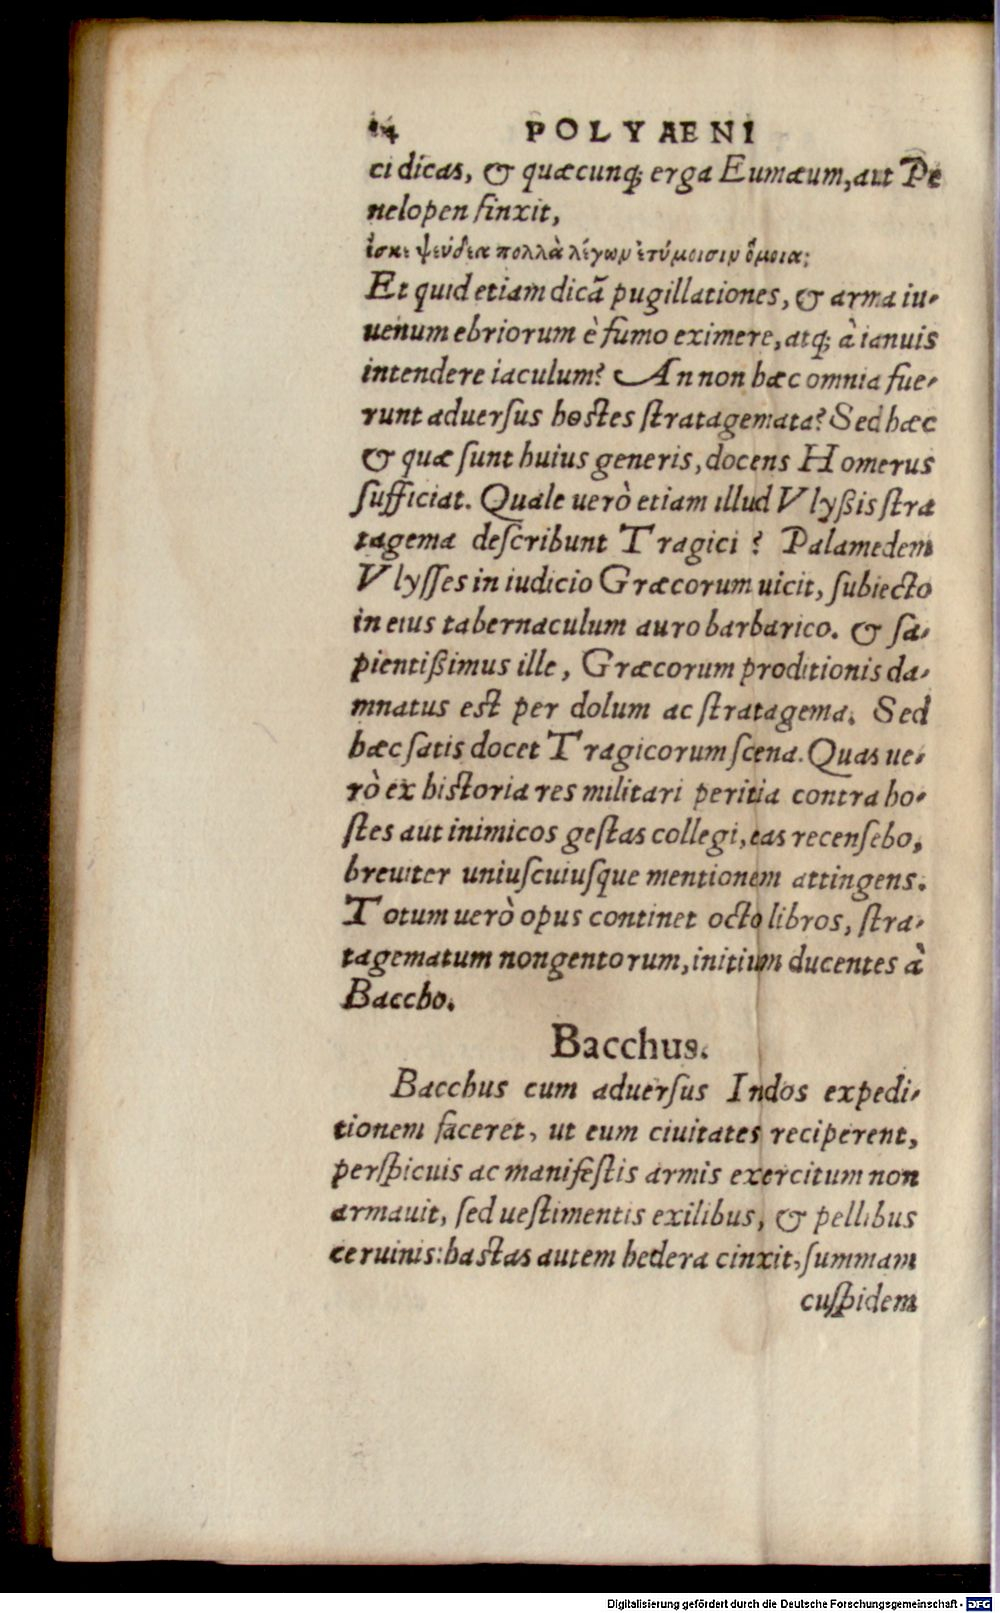 14 POLYAENI
ci dicas, & quæcunq; erga Eumæum, aut Pe
nelopen finxit,
ἴσκε ψεύδεα πολλὰ λέγων ἐτύμοισιν ὅμοια:
Et quid etiam dicã pugillationes, & arma iu-
uenum ebriorum è fumo eximere, atq; à ianuis
intendere iaculum? An non hæc omnia fue-
runt aduersus hostes stratagemata? Sed hæc
& quæ sunt huius generis, docens Homerus
sufficiat. Quale uerò etiam illud Vlyßis stra
tagema describunt Tragici? Palamedem
Vlysses in iudicio Græcorum uicit, subiecto
in eius tabernaculum auro barbarico. & sa-
pientißimus ille, Græcorum proditionis da-
mnatus est per dolum ac stratagema. Sed
hæc satis docet Tragicorum scena. Quas ue-
rò ex historia res militari peritia contra ho-
stes aut inimicos gestas collegi, eas recensebo,
breuiter uniuscuiusque mentionem attingens.
Totum uerò opus continet octo libros, stra-
tagematum nongentorum, initium ducentes à
Baccho.
Bacchus.
Bacchus cum aduersus Indos expedi-
tionem faceret, ut eum ciuitates reciperent,
perspicuis ac manifestis armis exercitum non
armauit, sed uestimentis exilibus, & pellibus
ceruinis: hastas autem hedera cinxit, summam
cuspidem
Digitalisierung gefördert durch die Deutsche Forschungsgemeinschaft - DFG